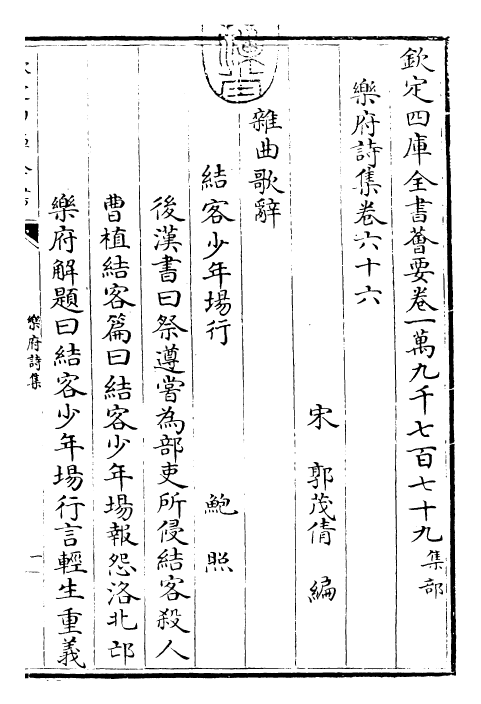 欽定四庫全書薈要卷一萬九千七百七十九集部
樂府詩集卷六十六
宋 郭茂倩 編
雜曲歌辭
結客少年場行 鮑照
後漢書曰祭遵嘗為部吏所侵結客殺人
曹植結客篇曰結客少年場報怨洛北邙
樂府解題曰結客少年場行言輕生重義
樂府詩集
一